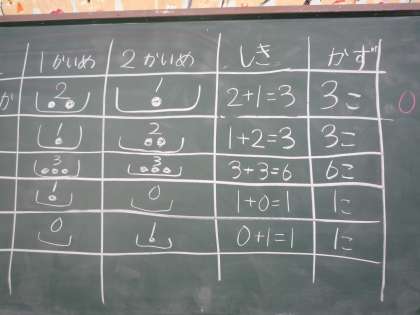 1かいめ 2かいめ しき かず
が 2 1 2+1=3 3こ 0
1 2 1+2=3 3こ
3 3 3+3=6 6こ
1 0 1+0=1 1こ
0 1 0+1=1 1こ